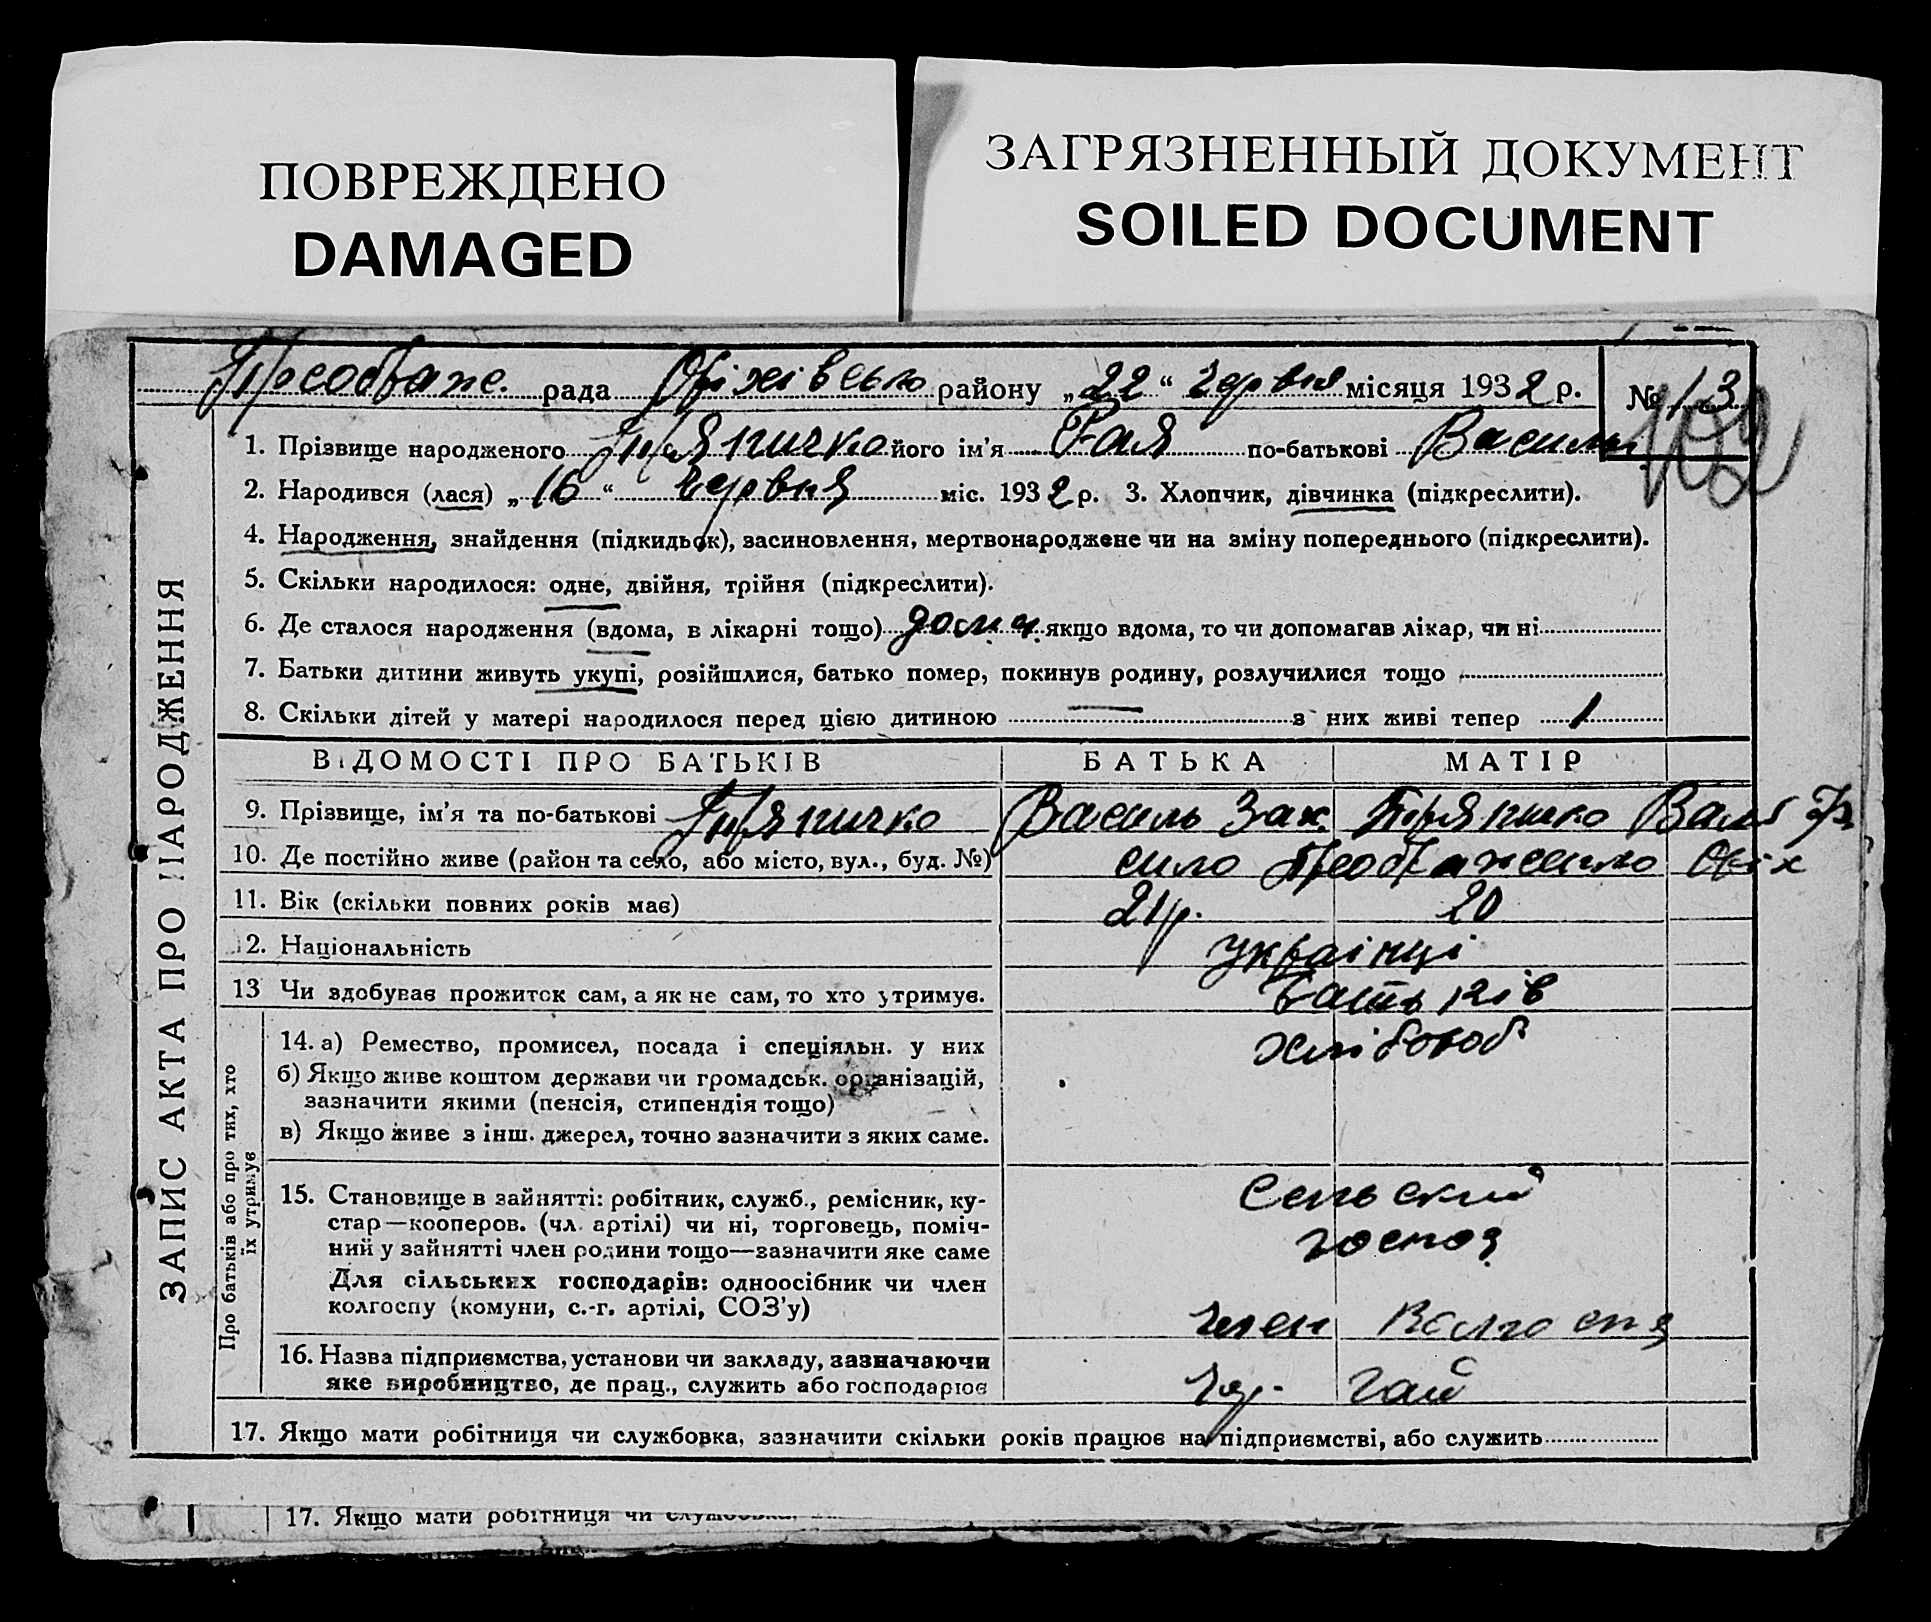 ПОВРЕЖДЕНО
DAMAGED
ЗАГРЯЗНЕННЫЙ ДОКУМЕНТ
SOILED DOCUMENT
Преображе. рада Оріхівсько району „22“ червня місяця 1932 р. № 13
102
1. Прізвище народженого Пряничко його ім’я Рая по-батькові Василь
2. Народився (лася) „16“ червня міс. 1932 р. 3. Хлопчик, дівчинка (підкреслити).
4. Народження, знайдення (підкидьок), засиновлення, мертвонароджене чи на зміну попереднього (підкреслити).
5. Скільки народилося: одне, двійня, трійня (підкреслити).
6. Де сталося народження (вдома, в лікарні тощо) дома якщо вдома, то чи допомагав лікар, чи ні
7. Батьки дитини живуть укупі, розійшлися, батько помер, покинув родину, розлучилися тощо
8. Скільки дітей у матері народилося перед цією дитиною — з них живі тепер 1
ВІДОМОСТІ ПРО БАТЬКІВ БАТЬКА МАТІР
9. Прізвище, ім’я та по-батькові Пряничко Василь Зах. Пряничко
10. Де постійно живе (район та село, або місто, вул., буд. №) село Оріх
11. Вік (скільки повних років має) 21р. 20
12. Національність українці
13 Чи здобував прожиток сам, а як не сам, то хто утримує. Батьків
14. а) Ремество, промисел, посада і спеціяльн. у них хлібороб
б) Якщо живе коштом держави чи громадськ. організацій,
зазначити якими (пенсія, стипендія тощо)
в) Якщо живе з інш. джерел, точно зазначити з яких саме.
15. Становище в зайнятті: робітник, служб., ремісник, ку-
стар—кооперов. (чл. артілі) чи ні, торговець, поміч-
ний у зайнятті член родини тощо—зазначити яке саме
Сельский
господ
Для сільських господарів: одноосібник чи член
колгоспу (комуни, с.-г. артілі, СОЗ’у) член Колгоспу
16. Назва підприємства, установи чи закладу, зазначаючи
яке виробництво, де прац., служить або господарює Чер. Гай
17. Якщо мати робітниця чи службовка, зазначити скільки років працює на підприємстві, або служить
ЗАПИС АКТА ПРО НАРОДЖЕННЯ
Про батьків або про тих, хто
їх утримує
17. Якщо мати робітниця чи службовка,